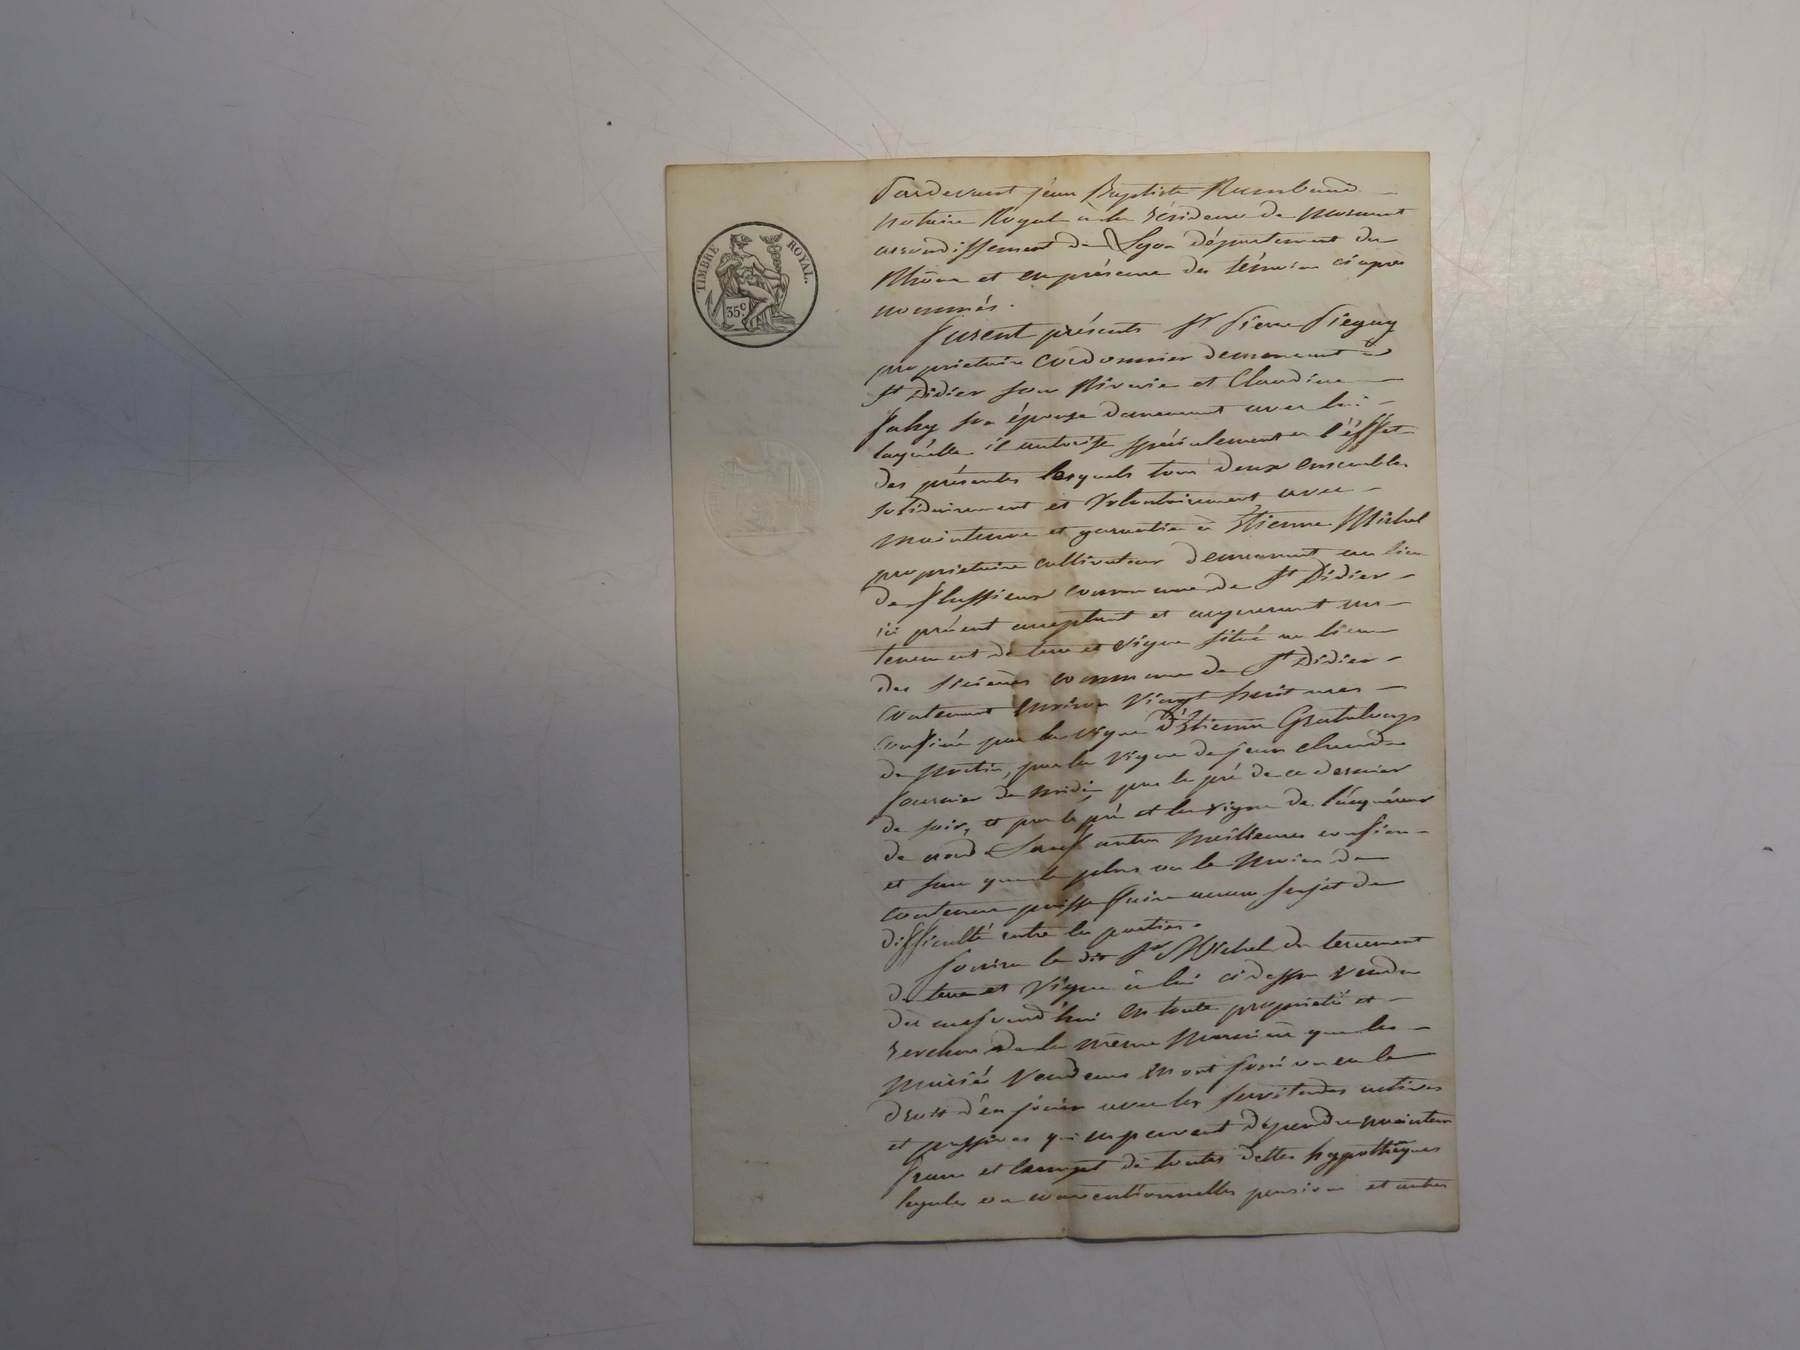 TIMBRE ROYAL.
35 c
Pardevant jean Baptiste Rambaud
notaire Royal à la résidence de mornant
arrondissement de Lyon département du
Rhône et en présence des témoins ci après
nommés.
furent présents sr pierre
propriétaire cordonnier demeurant à
st Didier sous Riverie et Claudine
son épouse demeurant avec lui
laquelle il autorise spécialement à l'éffet
des présentes lesquels tous deux ensembles
solidairement et volontairement avec
maintenue et garantie à Etienne Michel
propriétaire cultivateur demeurant au lieu
de commune de st Didier
ici présent acceptant et acquérant un
tenement de terre et vigne situé au lieu
des commune de st Didier
contenant environ vingt huit ares
confiné par la vigne d'Etienne
de matin, par la vigne de jean claude
fournier de midi, par le pré de ce dernier
de soir, et par le pré et la vigne de l'acquéreur
de nord. Sauf autres meilleures confins
et sans que le plus ou le moins de
contenue puisse faire aucun sujet de
difficulté entre les parties.
Jouira le dit sr Michel du tenement
de terre et vigne à lui ci dessus vendu
dès aujourd'hui en toute propriété et
de la même manière que les
mariés vendeurs en ont joui ou eu le
droit d'en jouir avec les servitudes actives
et passives qui en peuvent dépendre maintenu
franc et exempt de toutes dettes hypothèques
légales ou conventionnelles pension et autres